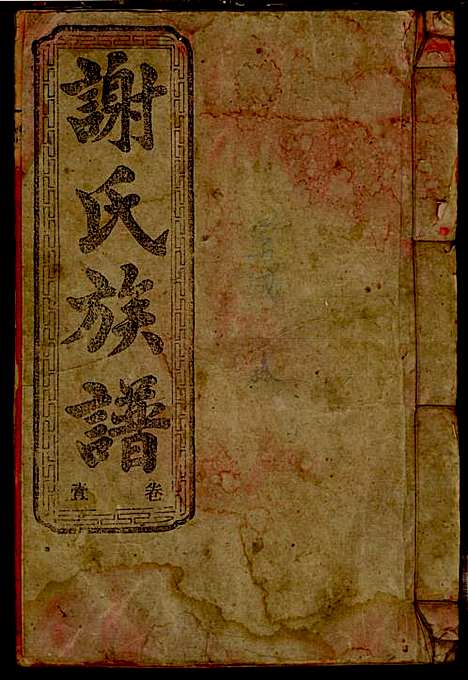 謝氏族譜
卷壹